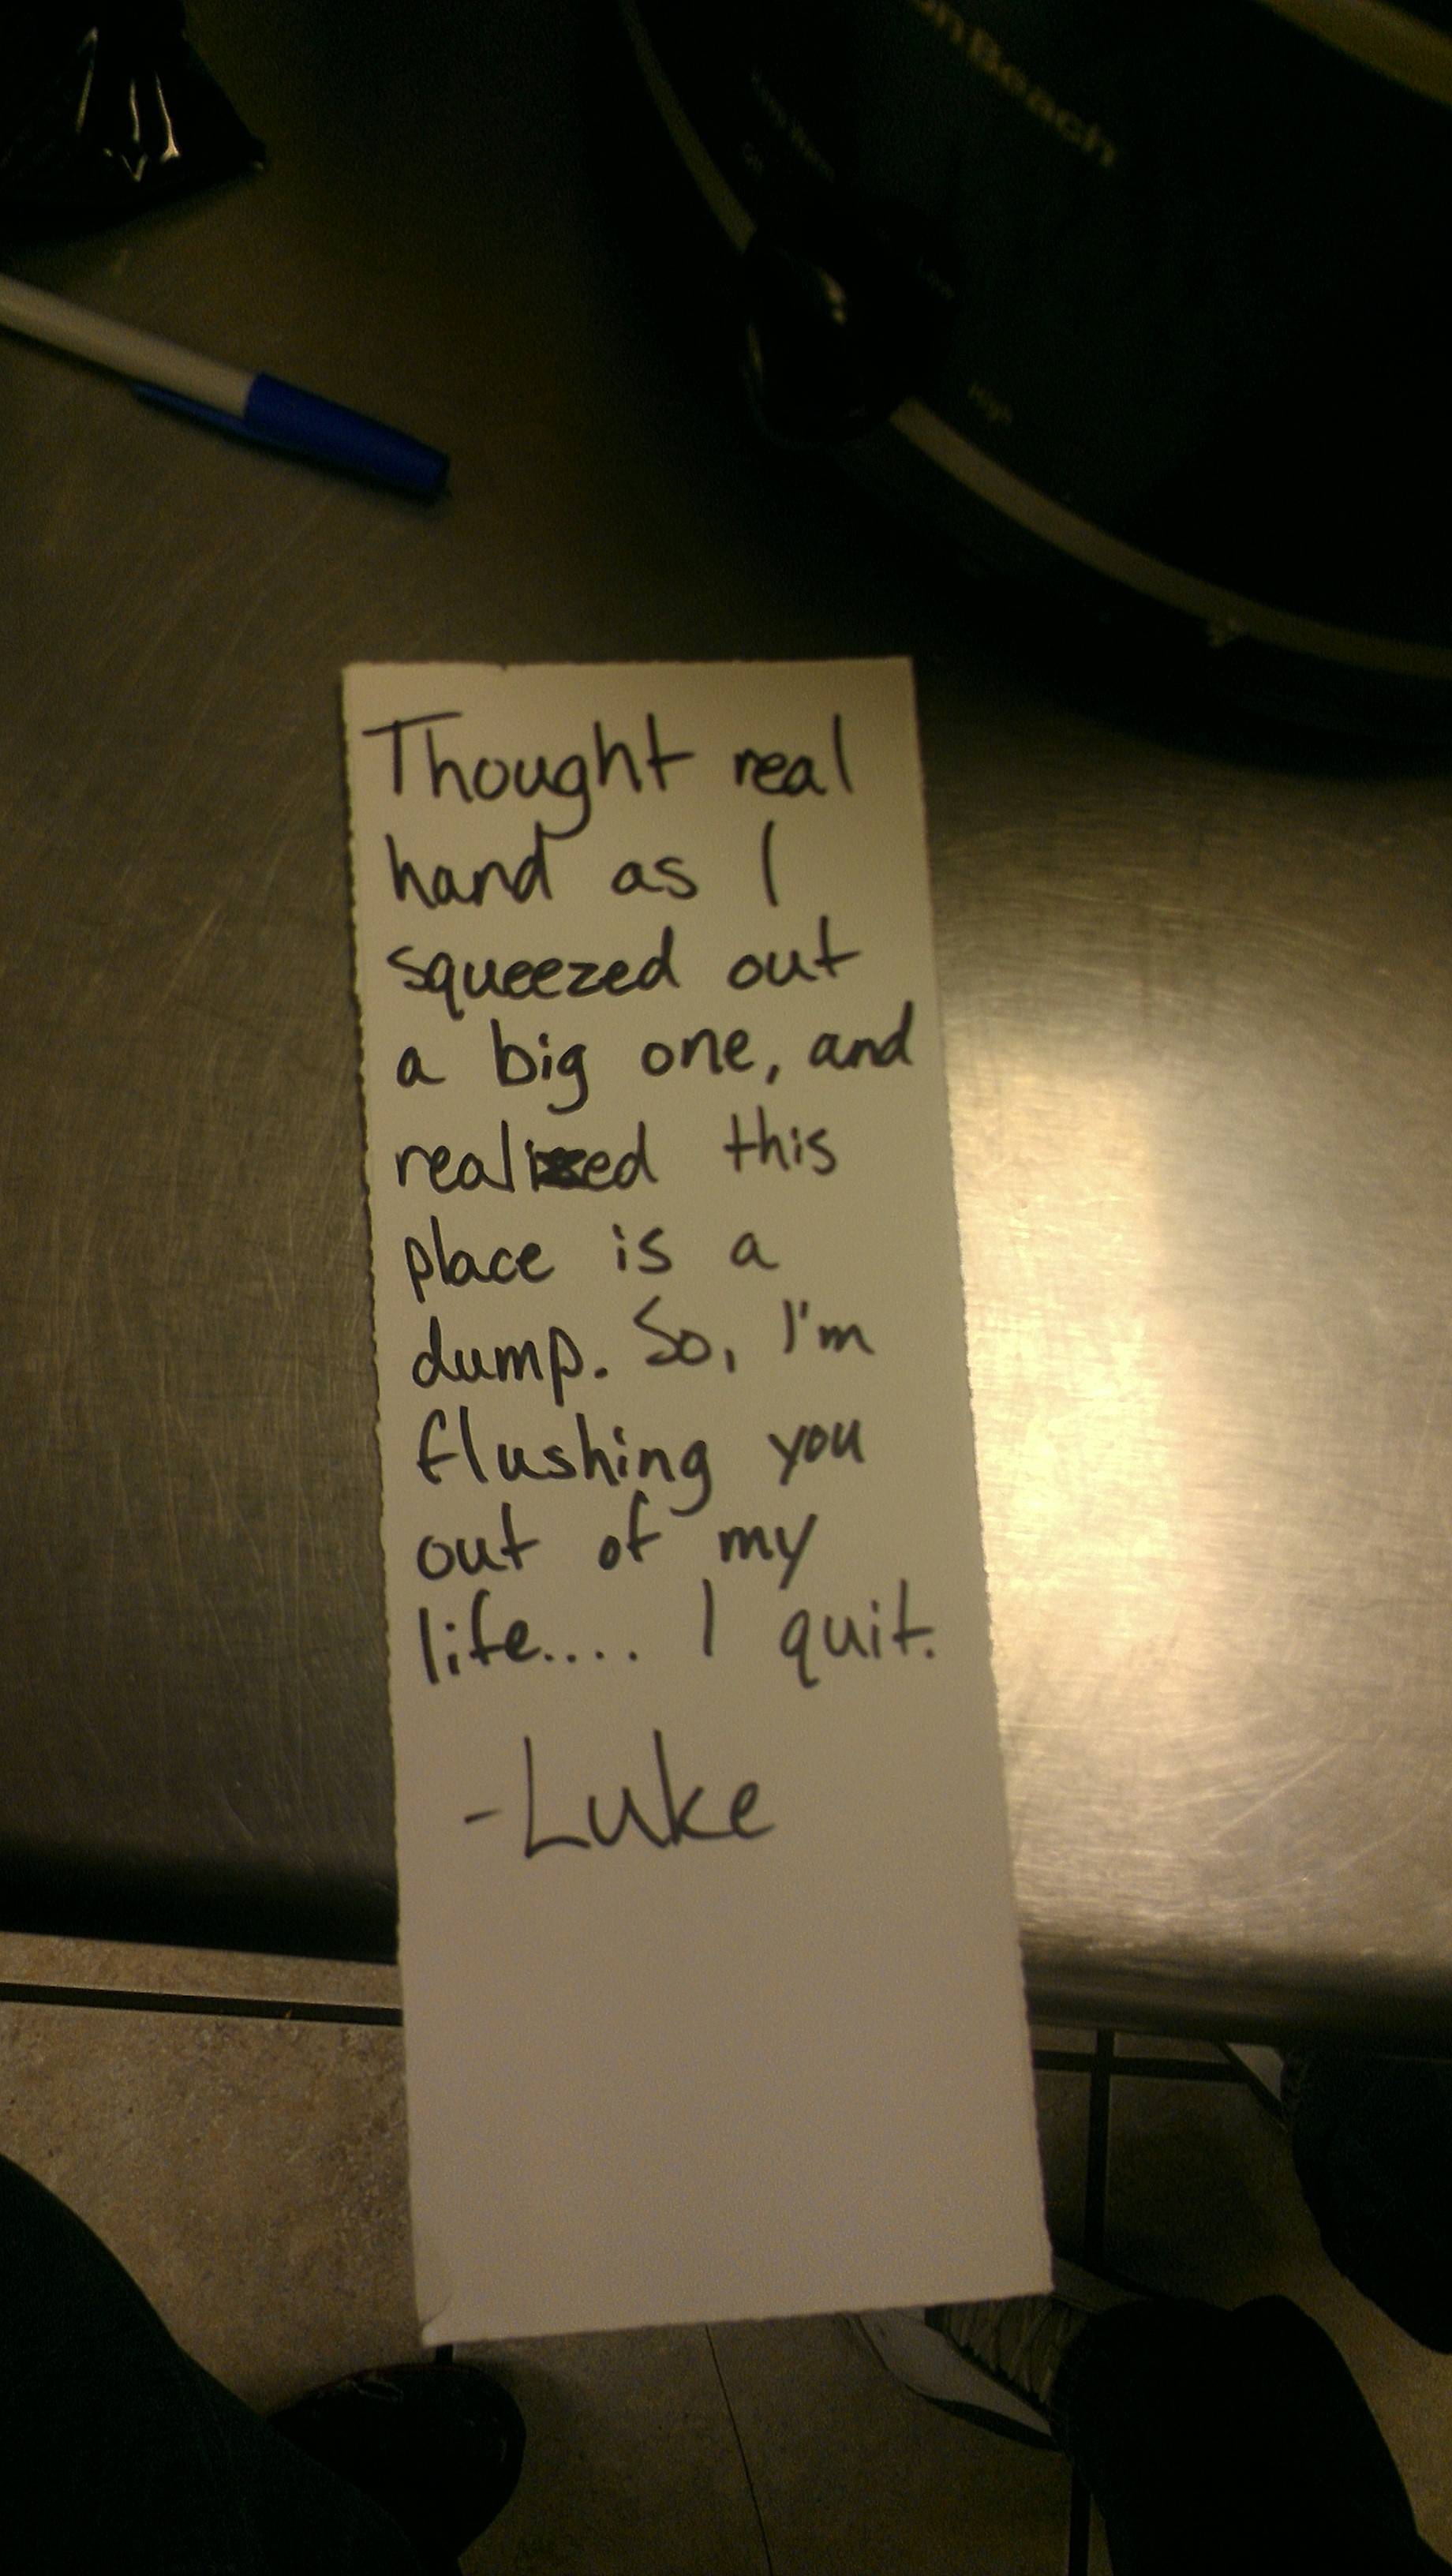 mBeach
High
Thought real
hand as I
squeezed out
a big one, and
realized this
place is a
dump. So, I'm
flushing you
out of my
life.... I quit.
-Luke